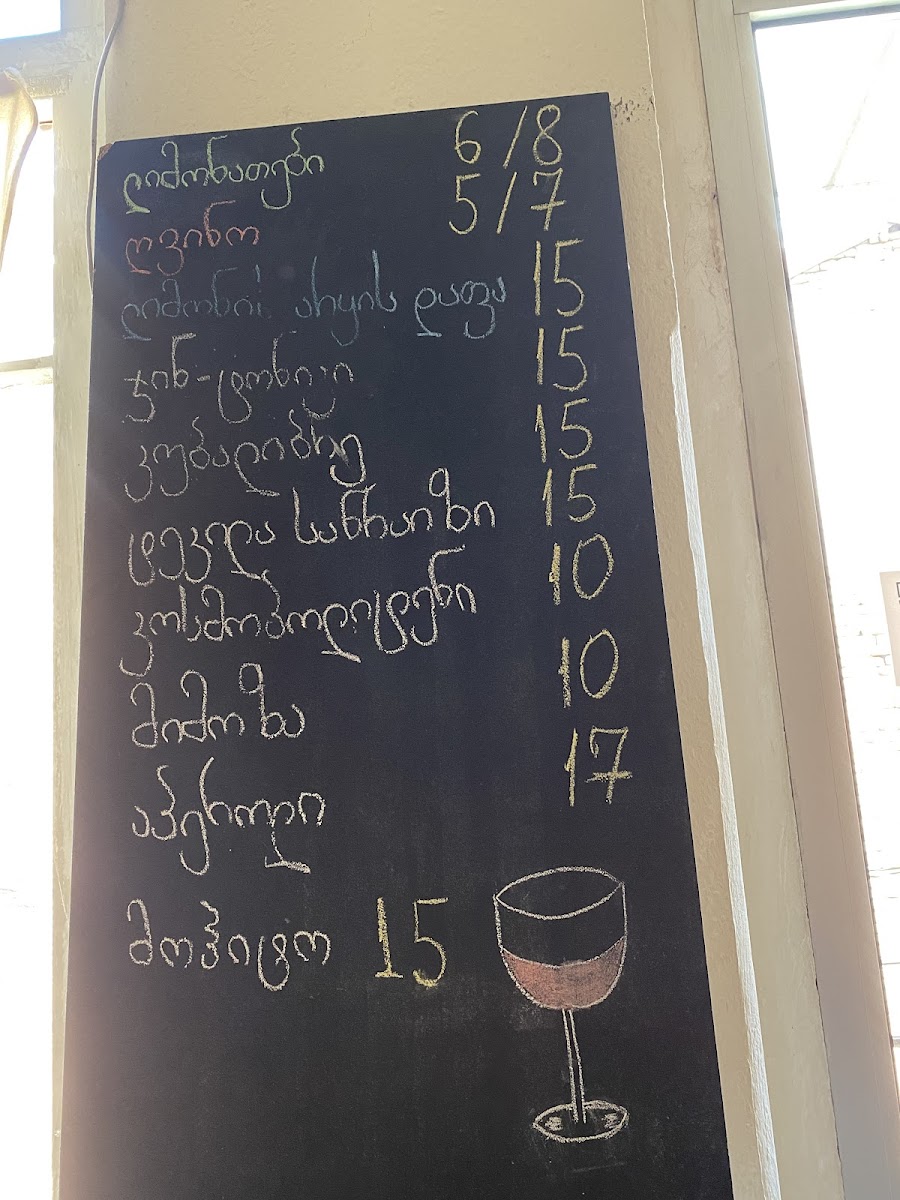 ლიმონათები 6/8
ღვინო 5/7
ლიმონი არყის დაფა 15
ჯინ-ტონიკი 15
კუბალიბრე 15
ტეკილა სანრაიზი 15
კოსმოპოლიტენი 10
მიმოზა 10
აპეროლი 17
მოჰიტო 15